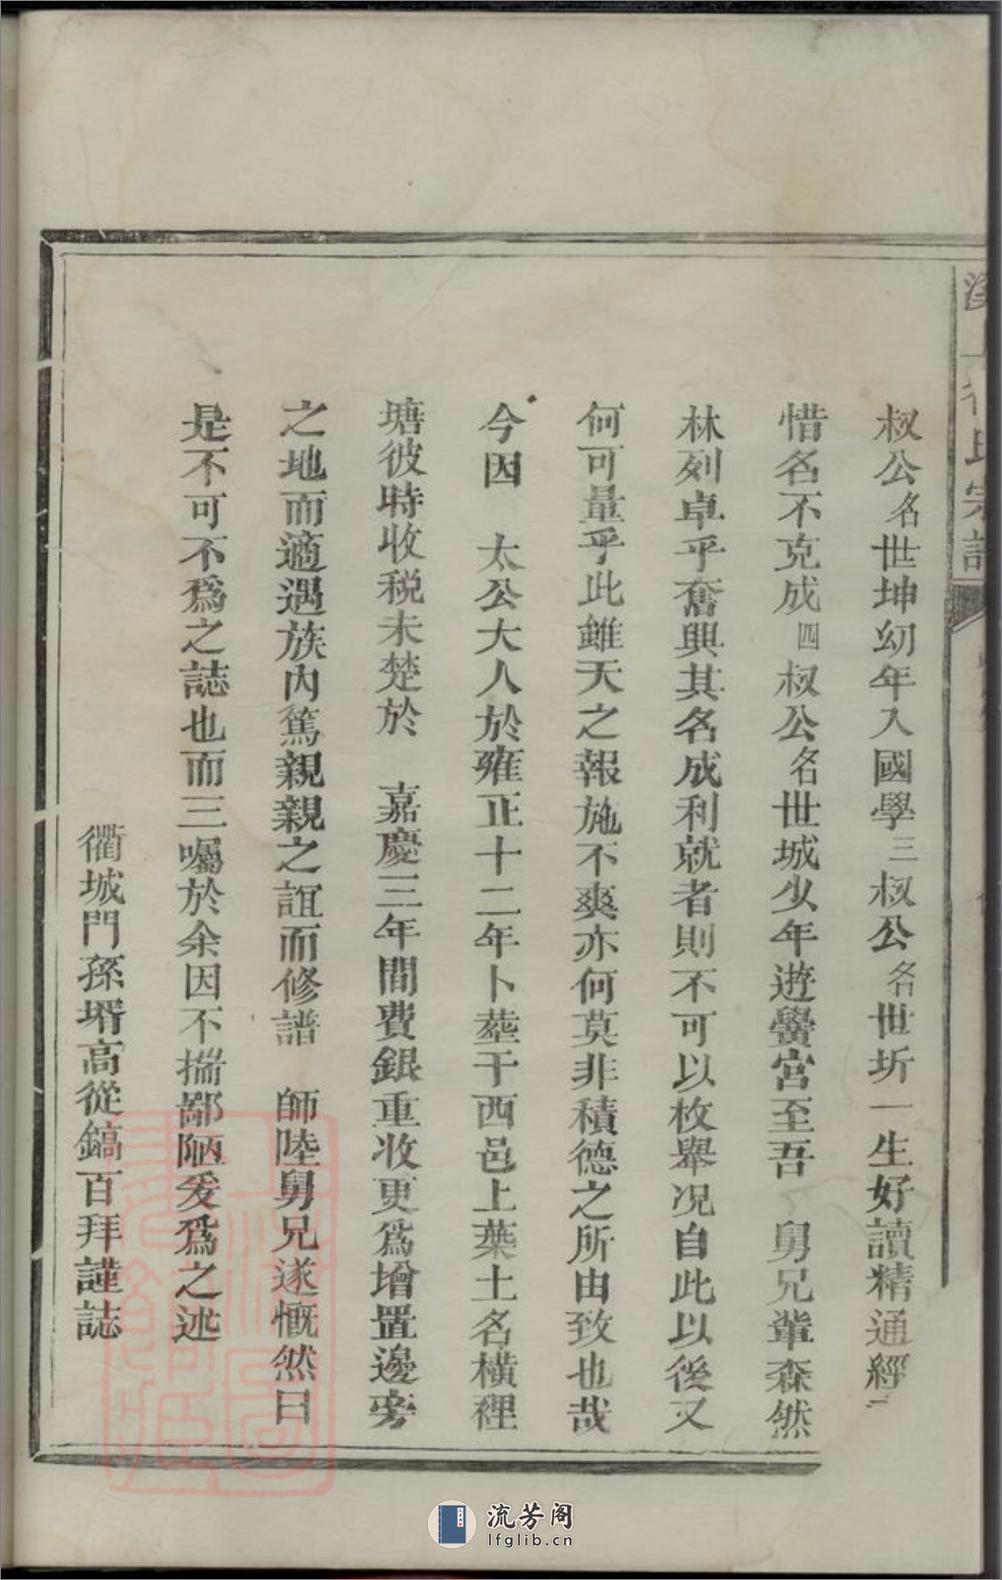 叔公名世坤幼年入國學三叔公名世圻一生好讀精通經
惜名不克成四叔公名世城少年遊黌宮至吾　舅兄輩森然
林列卓乎奮興其名成利就者則不可以枚舉况自此以後又
何可量乎此雖天之報施不爽亦何莫非積德之所由致也哉
今因　太公大人於雍正十二年卜塟于西邑上葉土名橫裡
塘彼時收税未楚於　嘉慶三年間費銀重收更爲增置邊旁
之地而適遇族內篤親親之誼而修譜　師陸舅兄遂慨然曰
是不可不爲之誌也而三囑於余因不揣鄙陋爰爲之述
衢城門孫壻高從鎬百拜謹誌
流芳阁
lfglib.cn